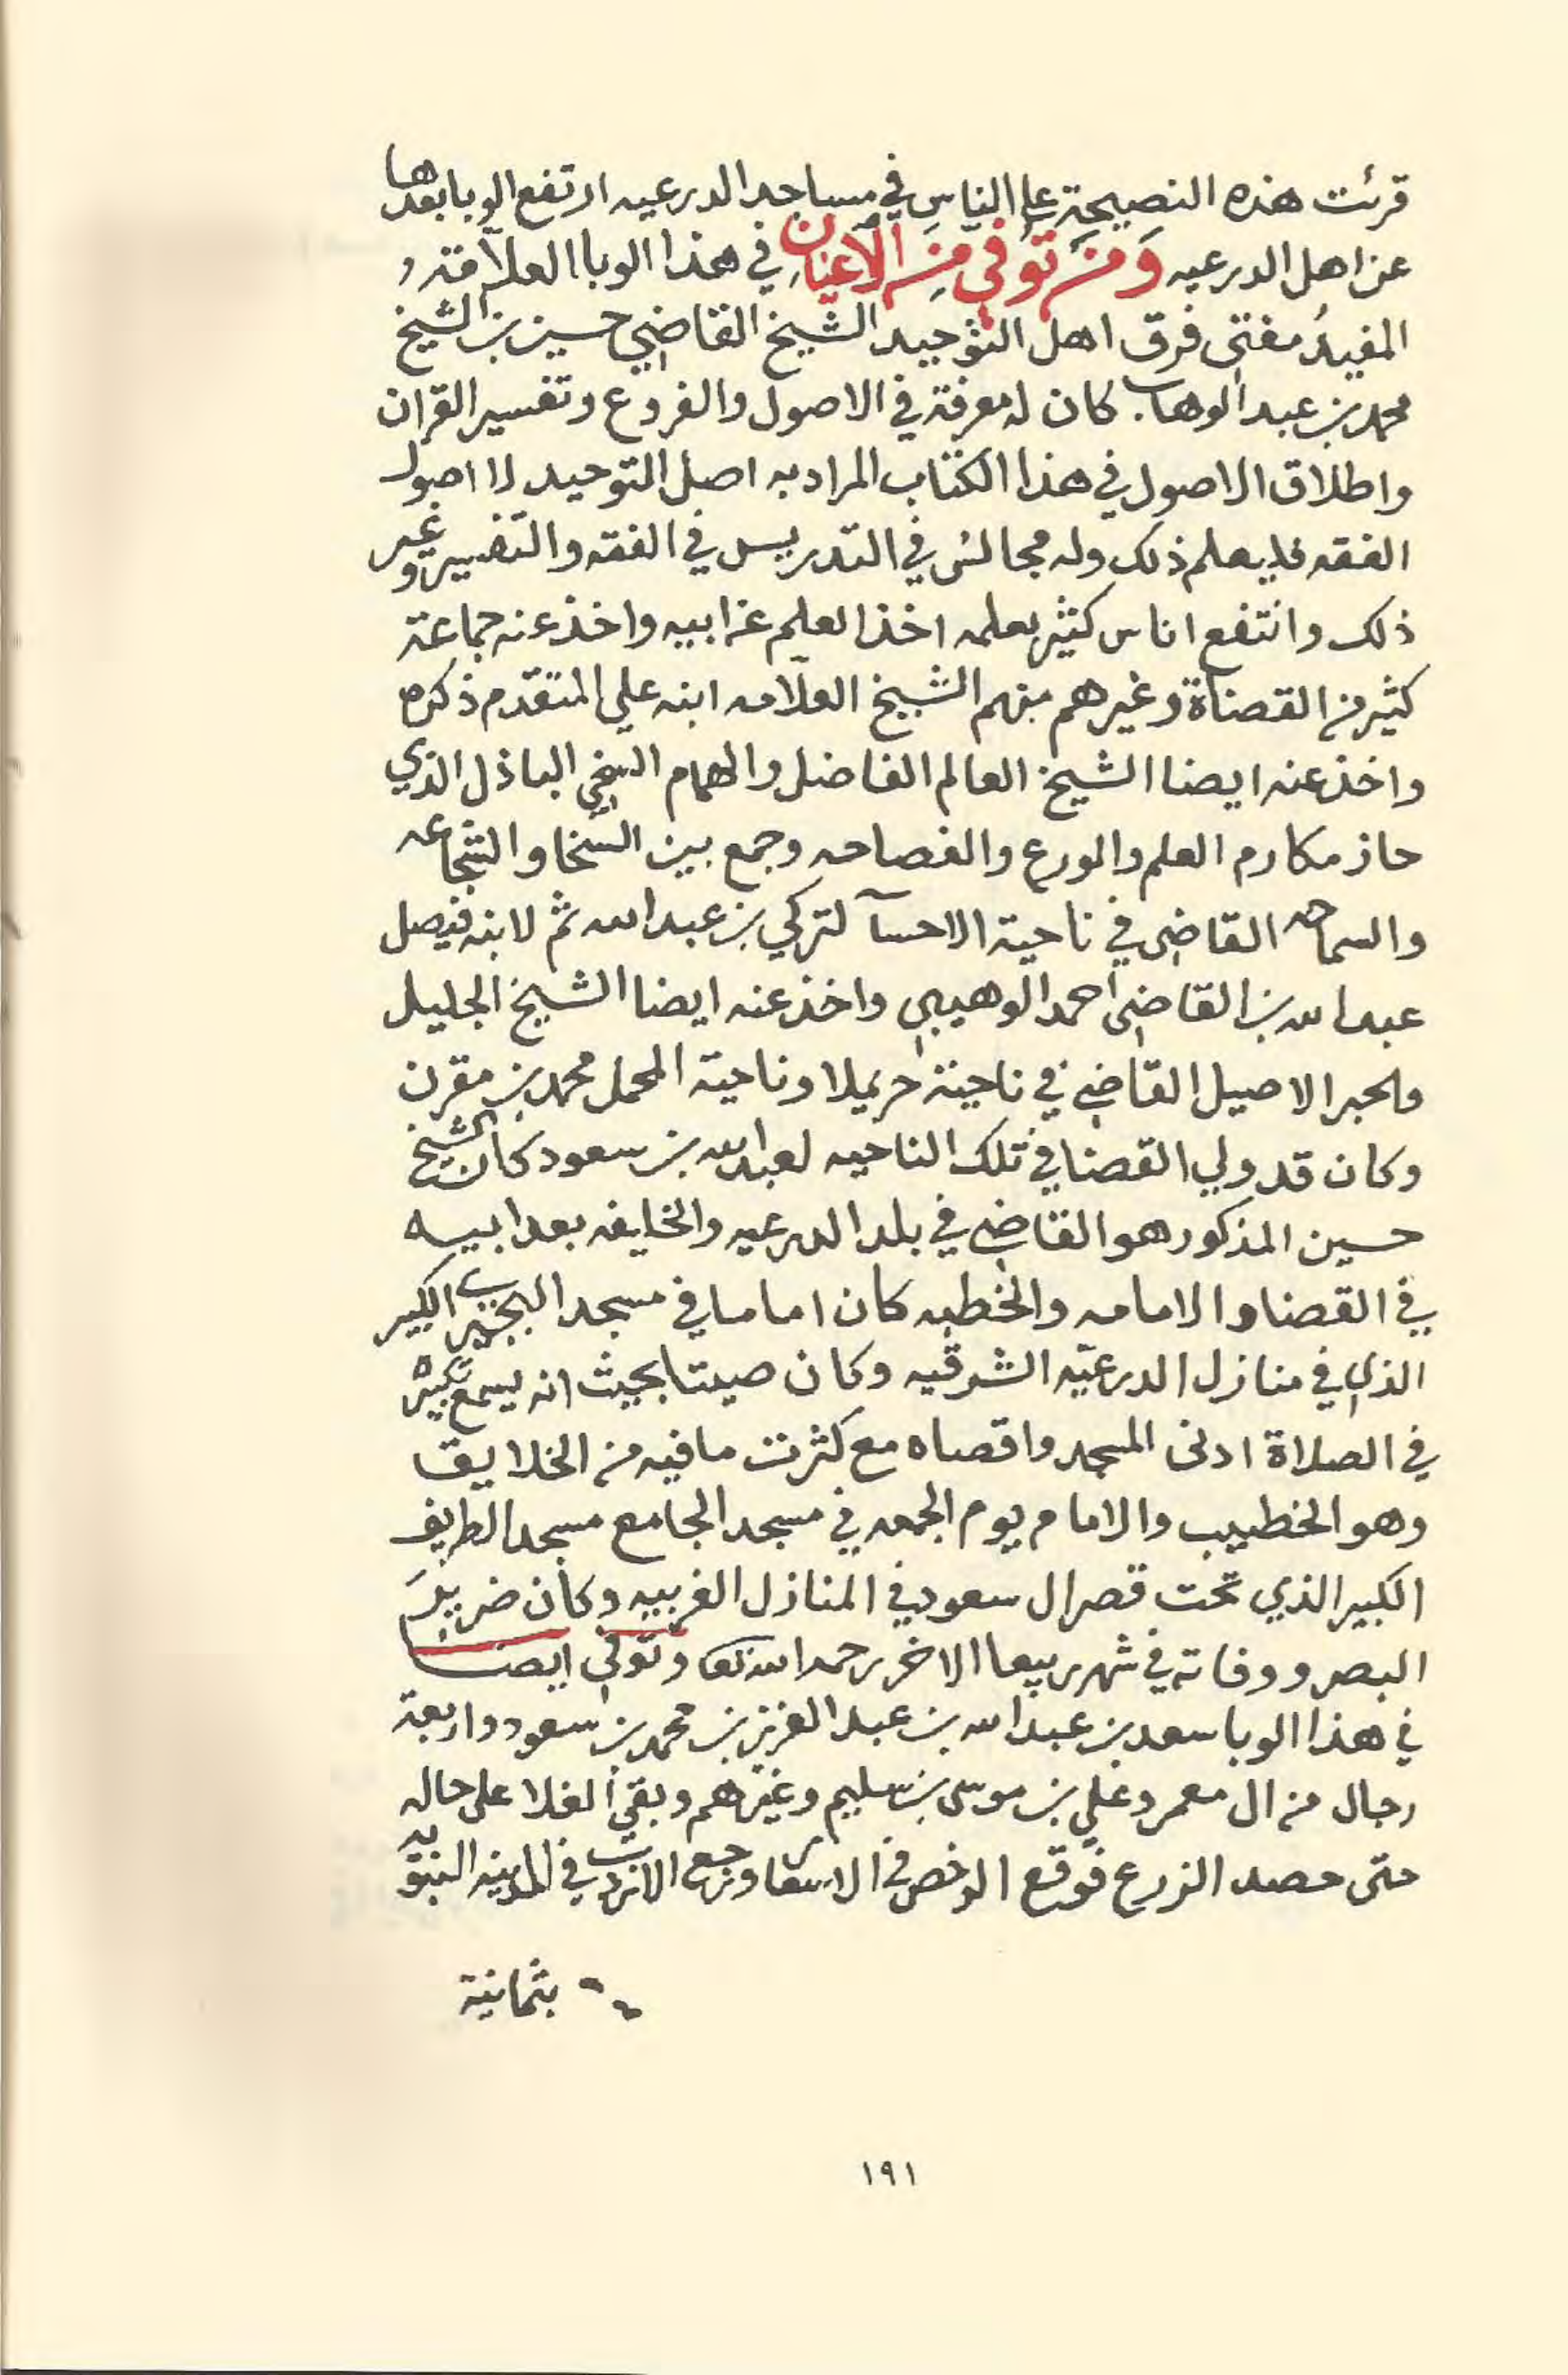 قرئت هذه النصيحة على الناس في مساجد الدرعيه ارتفع الوبا بعدها
عن اهل الدرعيه وَمَنْ تَوُفيَ مِنَ الأَعْيَانِ في هذا الوبا العلّامة و
المفيدُ مفتي فرق اهل التوحيد الشيخ القاضي حسين بن الشيخ
محمد بن عبد الوهاب. كان له معرفة في الاصول والفروع وتفسير القران
واطلاق الاصول في هذا الكتاب المراد به اصل التوحيد لا اصول
الفقه فليعلم ذلك وله مجالس في التدريس في الفقه والتفسير وغير
ذلك وانتفع اناس كثير بعلمه اخذ العلم عن ابيه واخذ عنه جماعة
كثير من القضاة وغيرهم منهم الشيخ العلّامه ابنه علي المتقدّم ذكره
واخذ عنه ايضا الشيخ العالم الفاضل والهمام السخي الباذل الذي
حاز مكارم العلم والورع والفصاحه وجمع بين السخا والشجاعه
والسماحه القاضي في ناحية الاحسآ لتركي بن عبد الله ثم لابنه فيصل
عبد الله بن القاضي احمد الوهيبي واخذ عنه ايضا الشيخ الجليل
والحبر الاصيل القاضي في ناحية حريملا وناحية المحمل محمد بن مقرن
وكان قد ولي القضا في تلك الناحيه لعبد الله بن سعود كان الشيخ
حسين المذكور هو القاضي في بلد الدرعيه والخليفه بعد ابيه
في القضا والامامه والخطبه كان اماما في مسجد البجيري الكبير
الذي في منازل الدرعيّه الشرقيه وكان صيتا بحيث انه يسمع تكبيره
في الصلاة ادنى المسجد واقصاه مع كثرت ما فيه من الخلايق
وهو الخطيب والامام يوم الجمعه في مسجد الجامع مسجد الطريف
الكبير الذي تحت قصر ال سعود في المنازل الغربيه وكان ضرير
البصر ووفاته في شهر ربيعا الاخر رحمه الله تعا وتوفي ايضا
في هذا الوبا سعد بن عبد الله بن عبد العزيز بن محمد بن سعود واربعة
رجال من ال معمر وعلي بن موسى بن سليم وغيرهم وبقي الغلا على حاله
حتى حصد الزرع فوقع الرخص في الاسعار وبيع الاردب في المدينه النبويه
بثمانية
١٩١